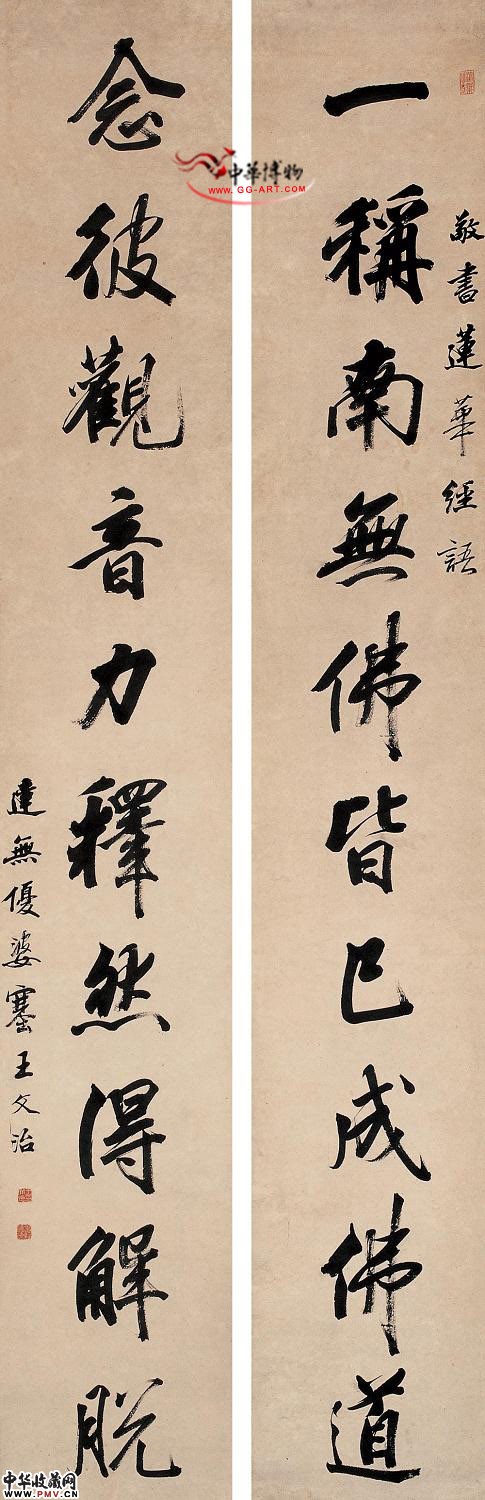 敬書蓮華經語
一稱南無佛皆已成佛道
念彼觀音力釋然得解脫
達無優婆塞王文治
中華博物
www.GG-ART.COM
中华收藏网
www.PMV.CN